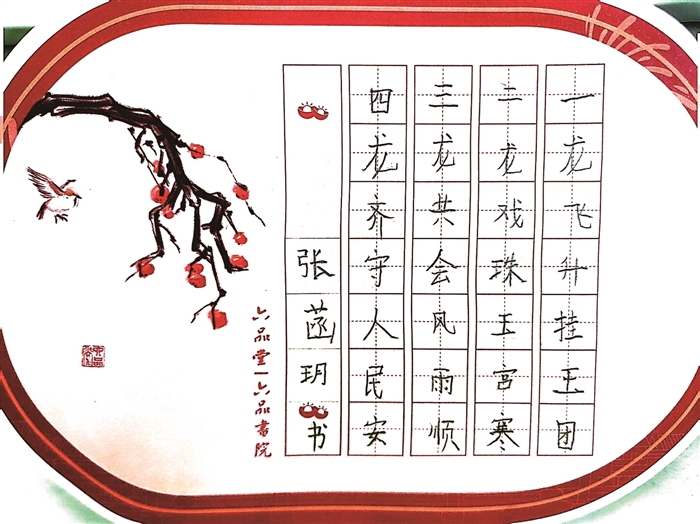 一龙飞升挂玉团
二龙戏珠玉宫寒
三龙共会风雨顺
四龙齐守人民安
张菡玥书
六品堂一六品書院